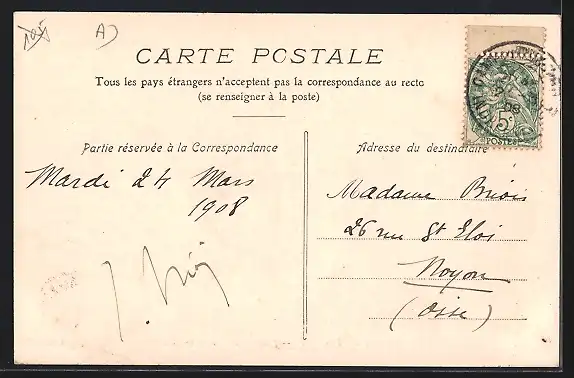 A)
CARTE POSTALE
Tous les pays étrangers n'acceptent pas la correspondance au recto
(se renseigner à la poste)
Partie réservée à la Correspondance
Mardi 24 Mars
1908
Adresse du destinataire
Madame Briois
26 rue St Eloi
Noyon
(Oise)
5c
POSTES